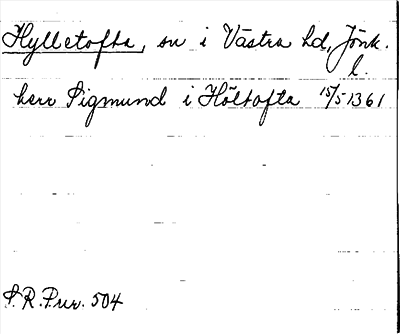 Hylletofta, sn i Västra hd, Jönk.
l.
herr Sigmund i Höltofta 15/5 1361
S.R.Prv. 504